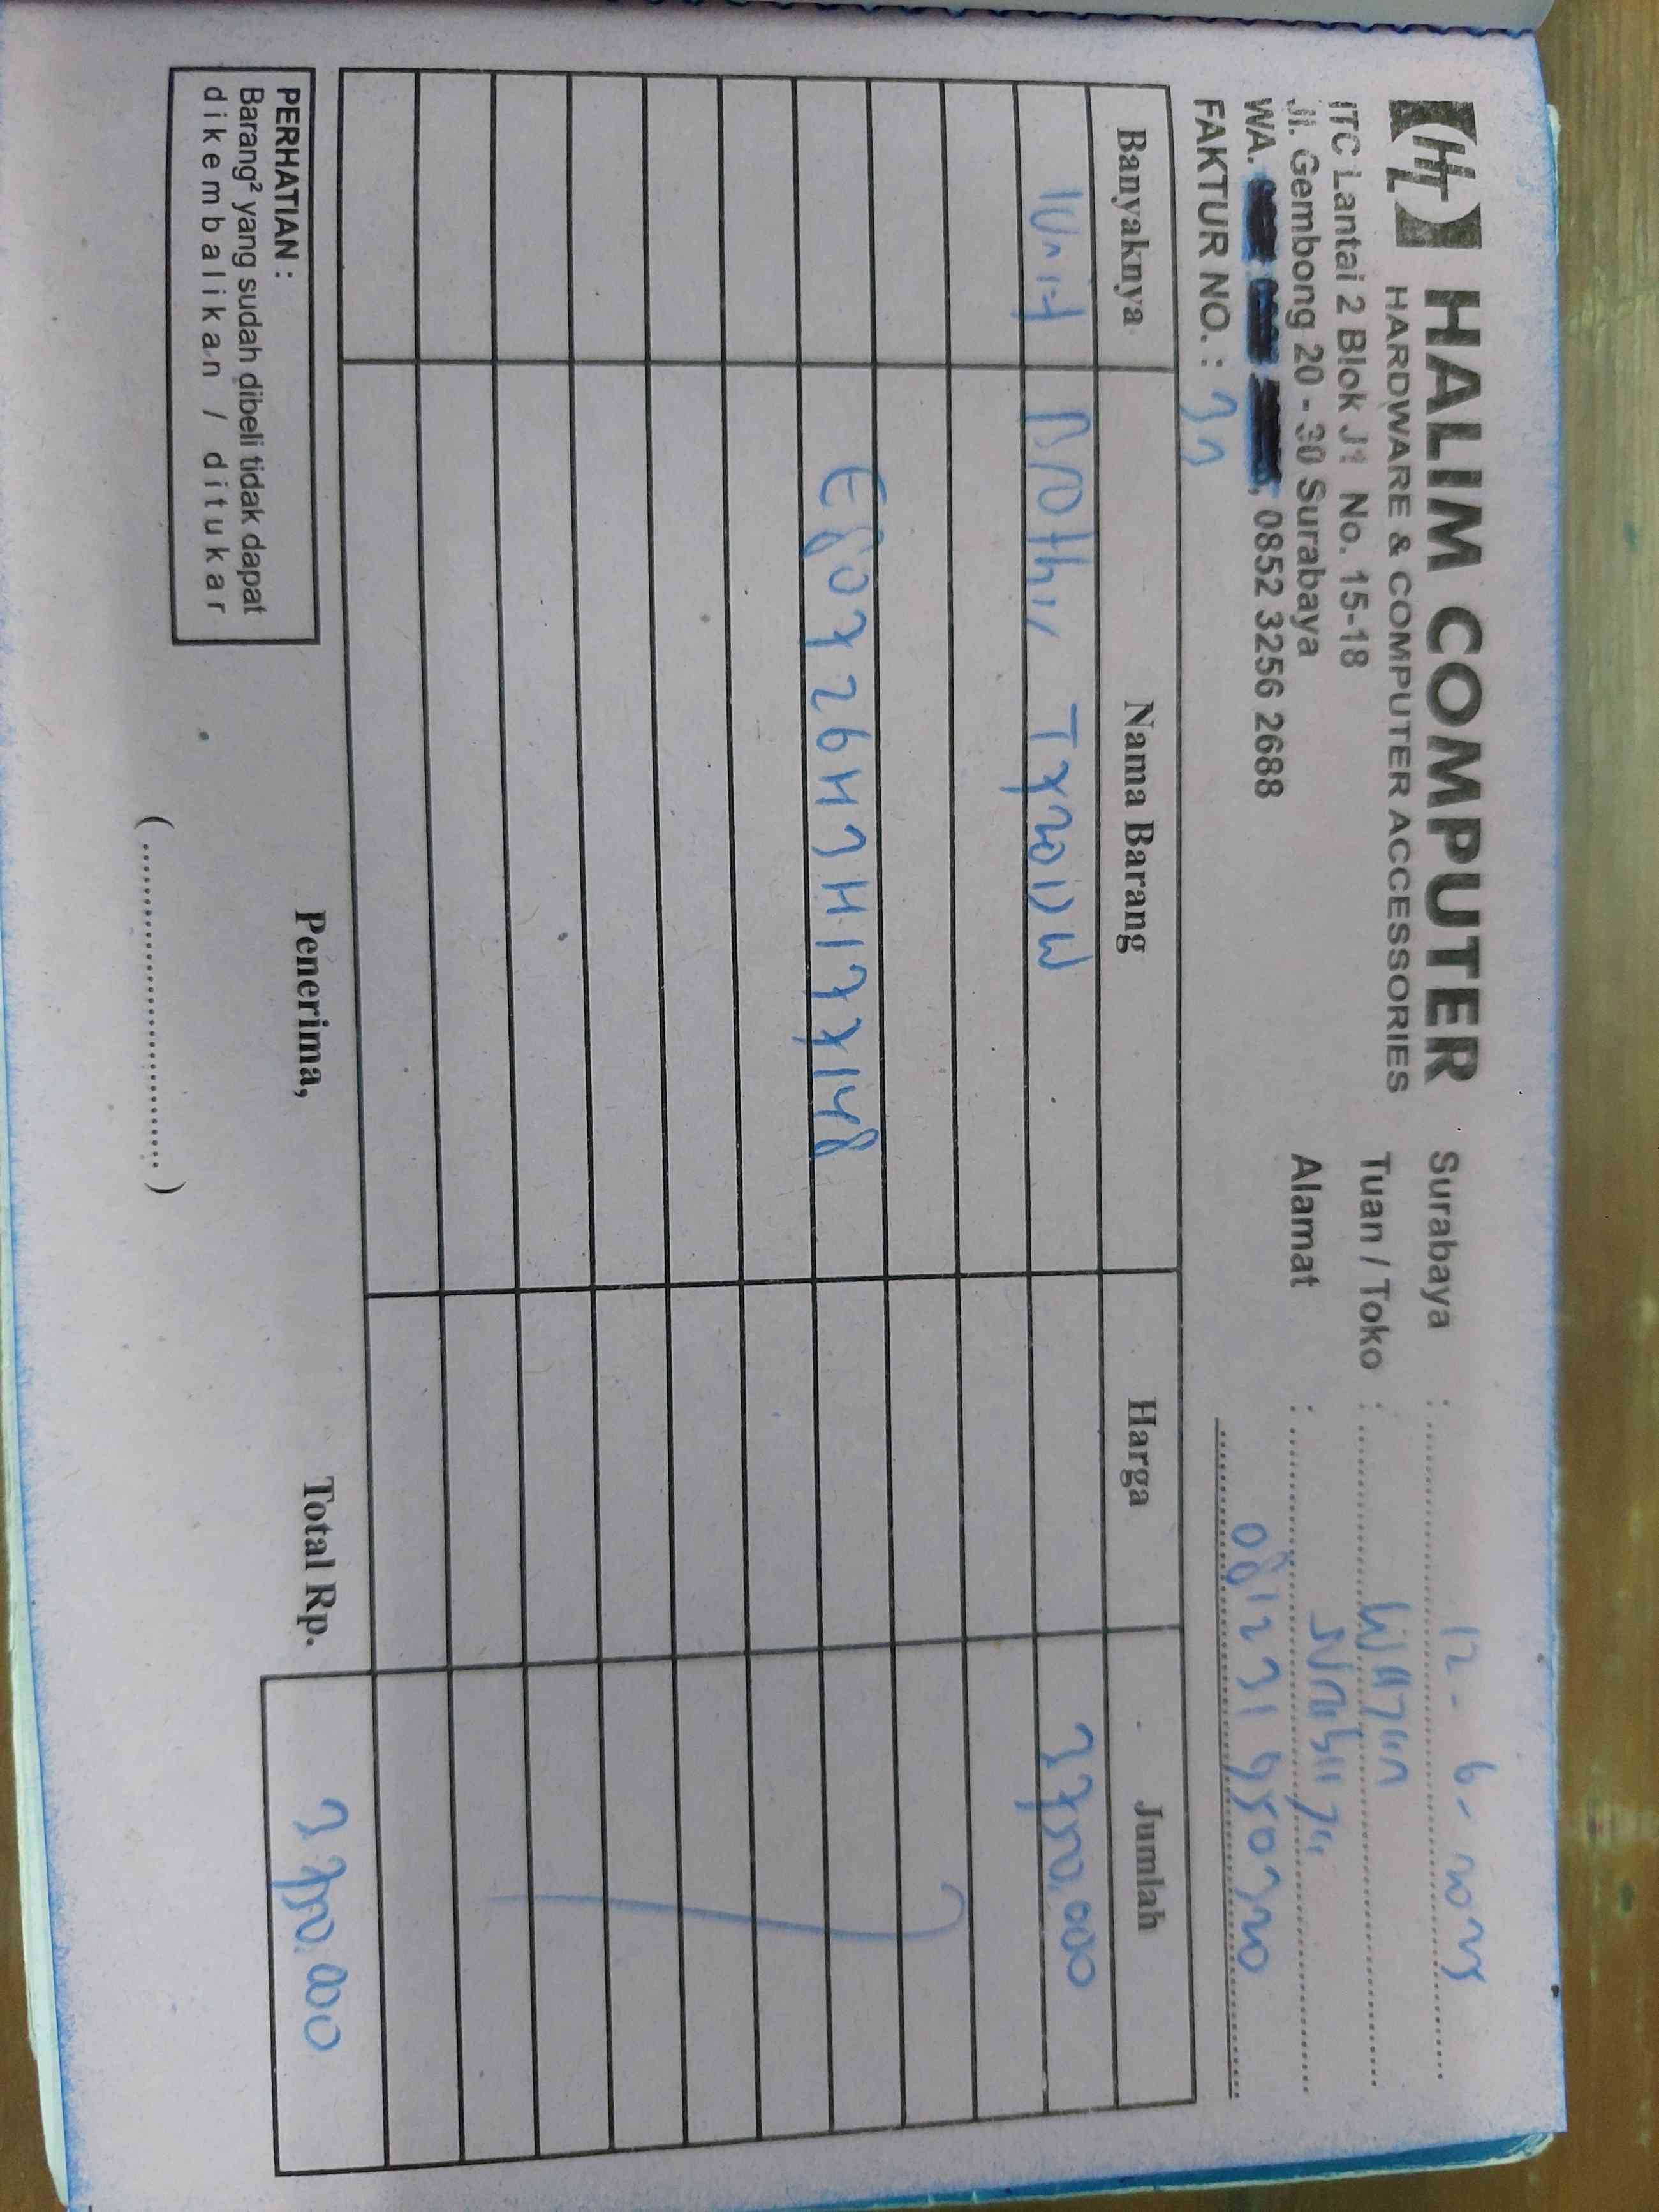 HT HALIM COMPUTER
HARDWARE & COMPUTER ACCESSORIES
ITC Lantai 2 Blok J1 No. 15-18
Jl. Gembong 20 - 30 Surabaya
WA. , 0852 3256 2688
FAKTUR NO. :
Surabaya : 12 - 6 -
Tuan / Toko :
Alamat : Surabaya
Banyaknya Nama Barang Harga Jumlah
1 Unit T720DW 3750.000
E80726H3H177148
PERHATIAN :
Barang² yang sudah dibeli tidak dapat
dikembalikan / ditukar
Penerima,
(........................................)
Total Rp. 3750.000